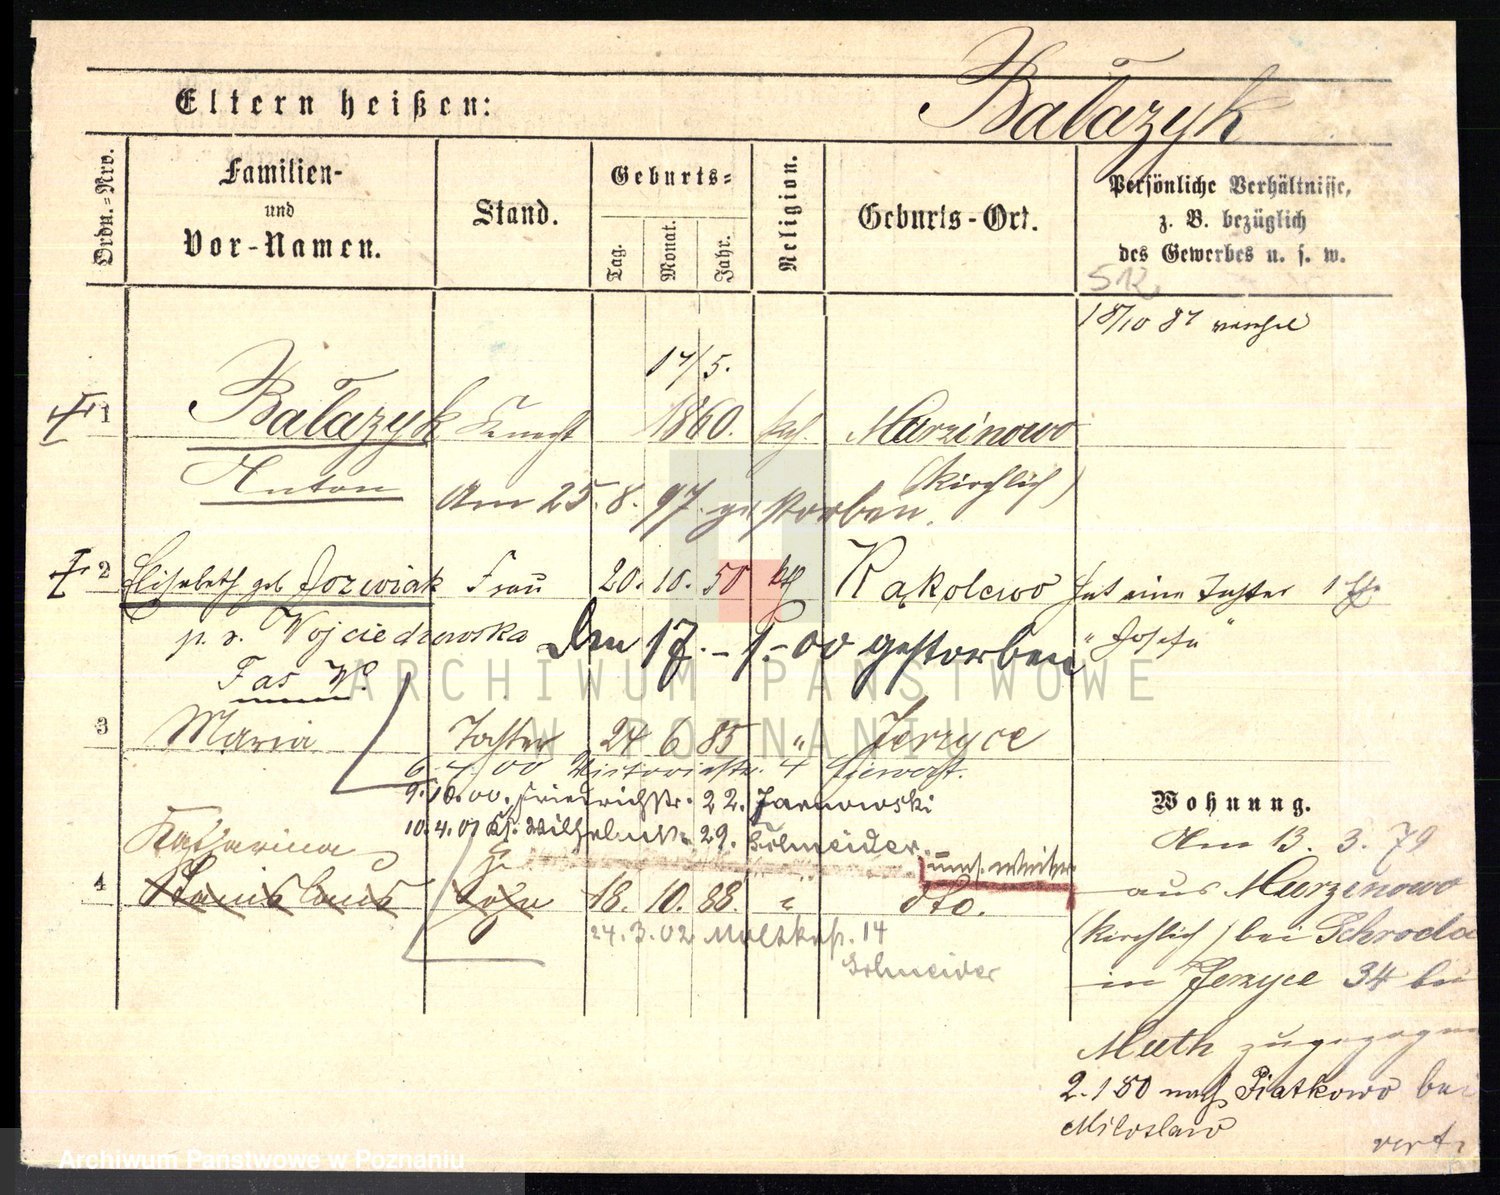 Eltern heißen:
Bałazyk
Ordn.-Nro.
Familien-
und
Vor-Namen.
Stand.
Geburts-
Tag.
Monat.
Jahr.
Religion.
Geburts-Ort.
Persönliche Verhältnisse,
z. B. bezüglich
des Gewerbes u. s. w.
512
18/10 87
17/5.
1 Bałazyk Knecht 1860. kath. Murzinowo
Anton (kirchlich)
Am 25.8.97 gestorben.
2 Elisabeth geb Jozwiak Frau 20. 10. 50 kth Rakolewo hat eine Tochter
p. v. Wojciechowska "Josefa"
Den 17.-1.-00 gestorben
Fas W.
3 Maria Tochter 24 6 85 " Jerzyce
6.4.00 Victoriastr. 4
9.10.00. Friedrichstr. 22. Jarnowski
10.4.01 Kl. Wilhelmstr. 29. Schneider.
Katharina
4 Stanislaus Sohn 18. 10. 88. " dto.
24.3.02 Moltkestr. 14
Schneider
Wohnung.
Am 13. 3. 79
aus Murzinowo
(kirchlich) bei Schroda
in Jerzyce 34 bei
Muth zugezogen
2.1 80 nach Piatkowo bei
Miloslaw
vert.
ARCHIWUM PAŃSTWOWE
W POZNANIU
Archiwum Państwowe w Poznaniu